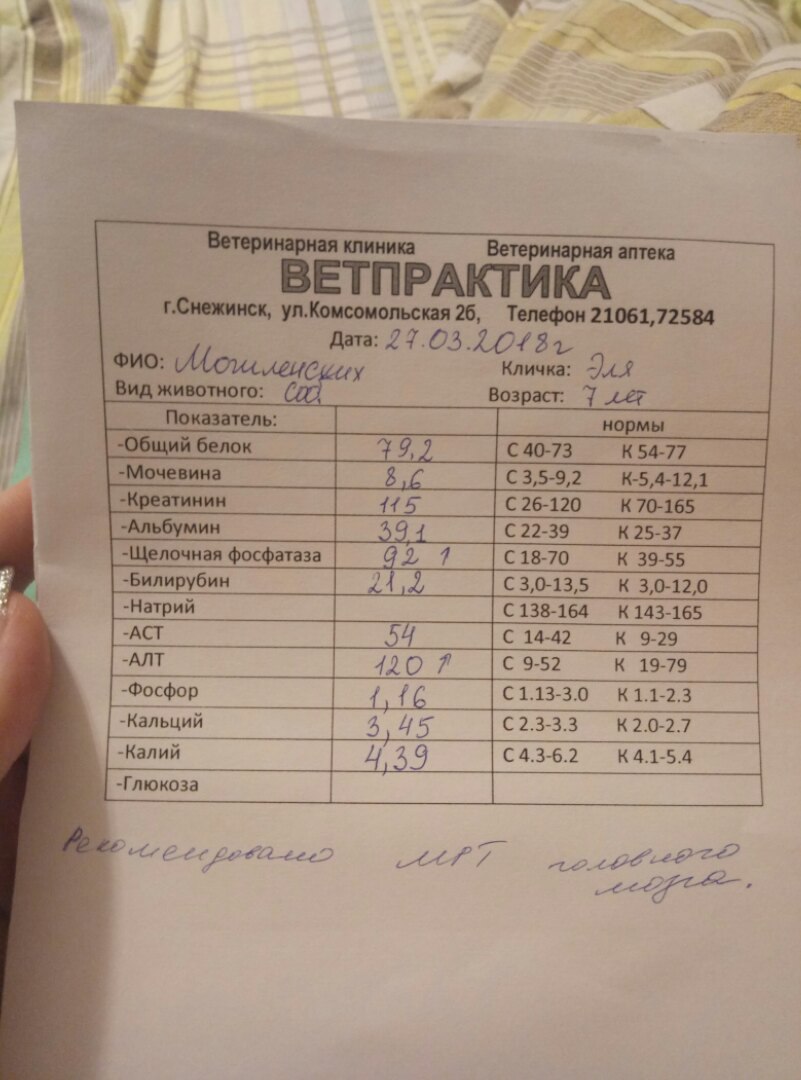 Ветеринарная клиника Ветеринарная аптека
ВЕТПРАКТИКА
г.Снежинск, ул.Комсомольская 2б, Телефон 21061,72584
Дата: 27.03.2018г
ФИО: Могиленских Кличка: Эля
Вид животного: соб. Возраст: 7 лет
Показатель: нормы
-Общий белок 79,2 С 40-73 К 54-77
-Мочевина 8,6 С 3,5-9,2 К-5,4-12,1
-Креатинин 115 С 26-120 К 70-165
-Альбумин 39,1 С 22-39 К 25-37
-Щелочная фосфатаза 92 ↑ С 18-70 К 39-55
-Билирубин 21,2 С 3,0-13,5 К 3,0-12,0
-Натрий С 138-164 К 143-165
-АСТ 54 С 14-42 К 9-29
-АЛТ 120 ↑ С 9-52 К 19-79
-Фосфор 1,16 С 1.13-3.0 К 1.1-2.3
-Кальций 3,45 С 2.3-3.3 К 2.0-2.7
-Калий 4,39 С 4.3-6.2 К 4.1-5.4
-Глюкоза
Рекомендовано МРТ головного
мозга.